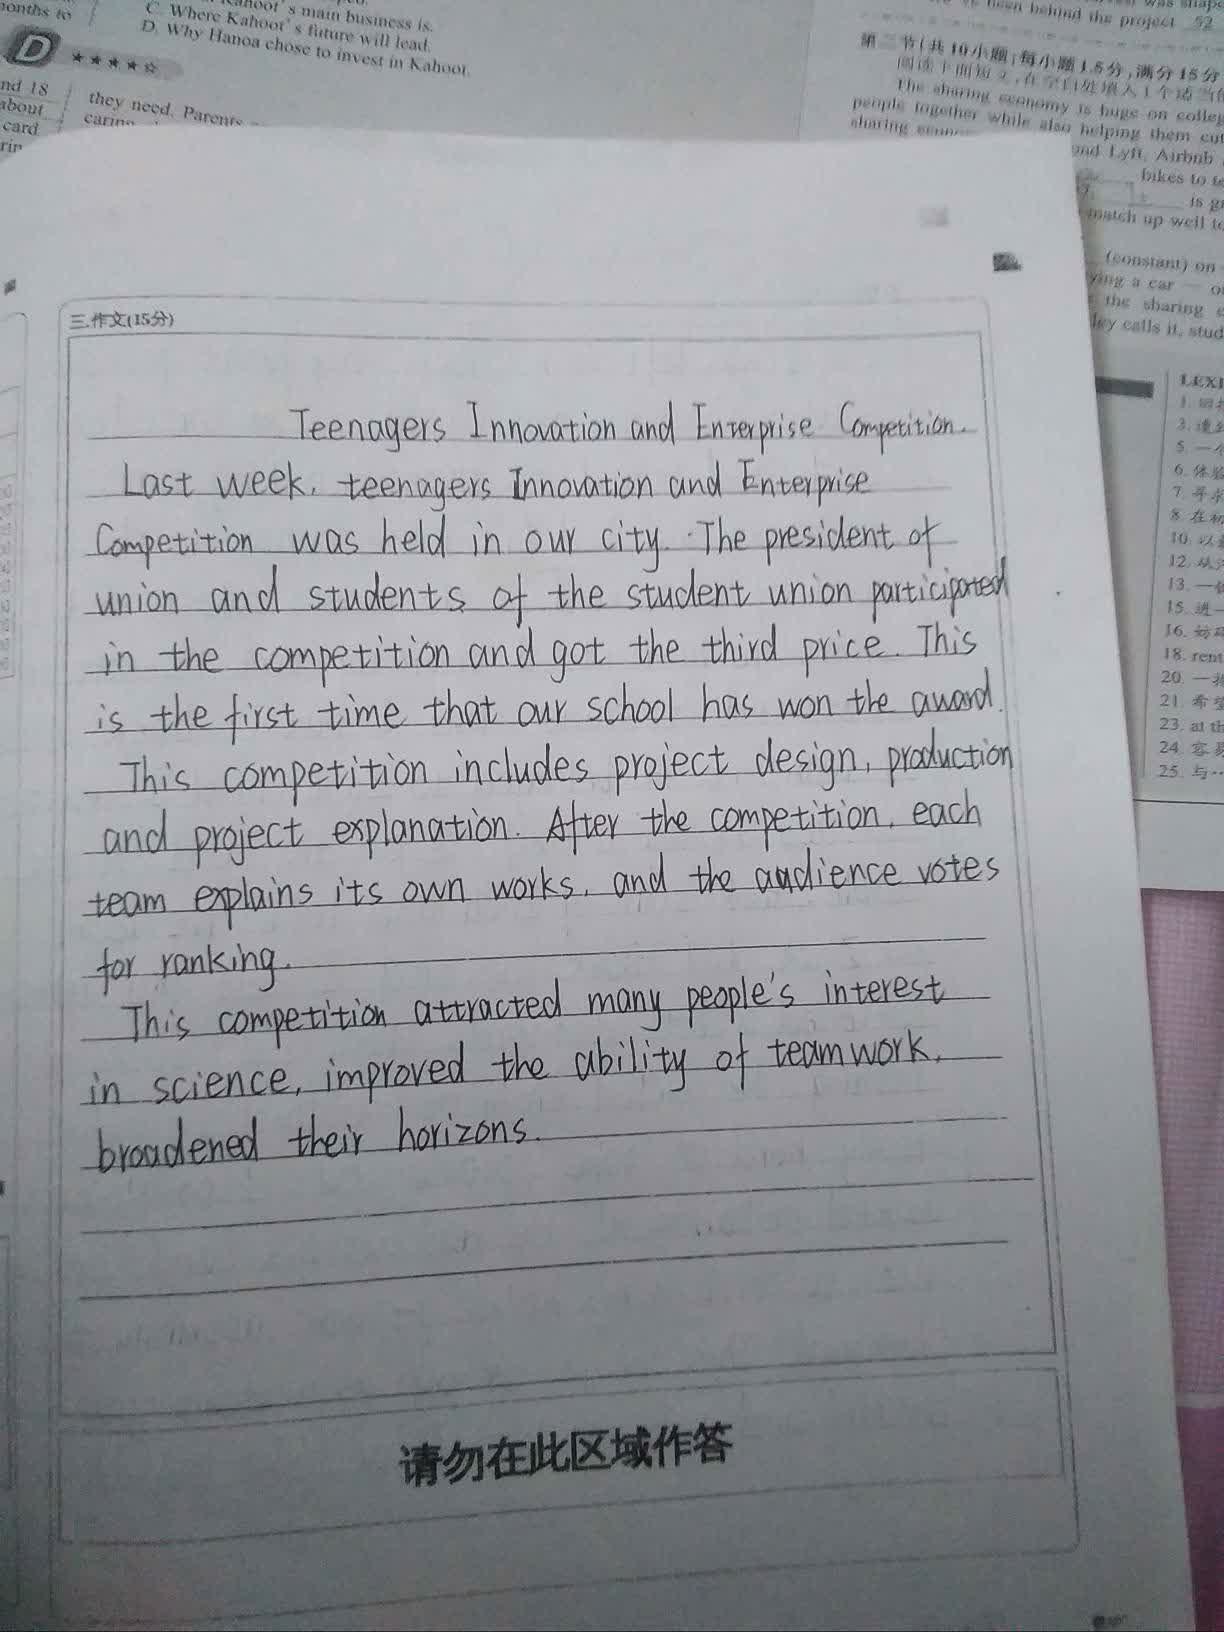 C. Where Kahoot's future will lead.
D. Why Hanoa chose to invest in Kahoot.
D ★★★★☆
they need. Parents
been behind the project 52
第二节(共10小题;每小题1.5分,满分15分
The sharing economy is huge on colleg
people together while also helping them cut
and Lyft, Airbnb
bikes to
match up well to
(constant) on
ying a car — o
the sharing e
ley calls it, stud
三.作文(15分)
Teenagers Innovation and Enterprise Competition.
Last week, teenagers Innovation and Enterprise
Competition was held in our city. The president of
union and students of the student union participated
in the competition and got the third price. This
is the first time that our school has won the award.
This competition includes project design, production
and project explanation. After the competition, each
team explains its own works, and the audience votes
for ranking.
This competition attracted many people's interest
in science, improved the ability of teamwork,
broadened their horizons.
请勿在此区域作答